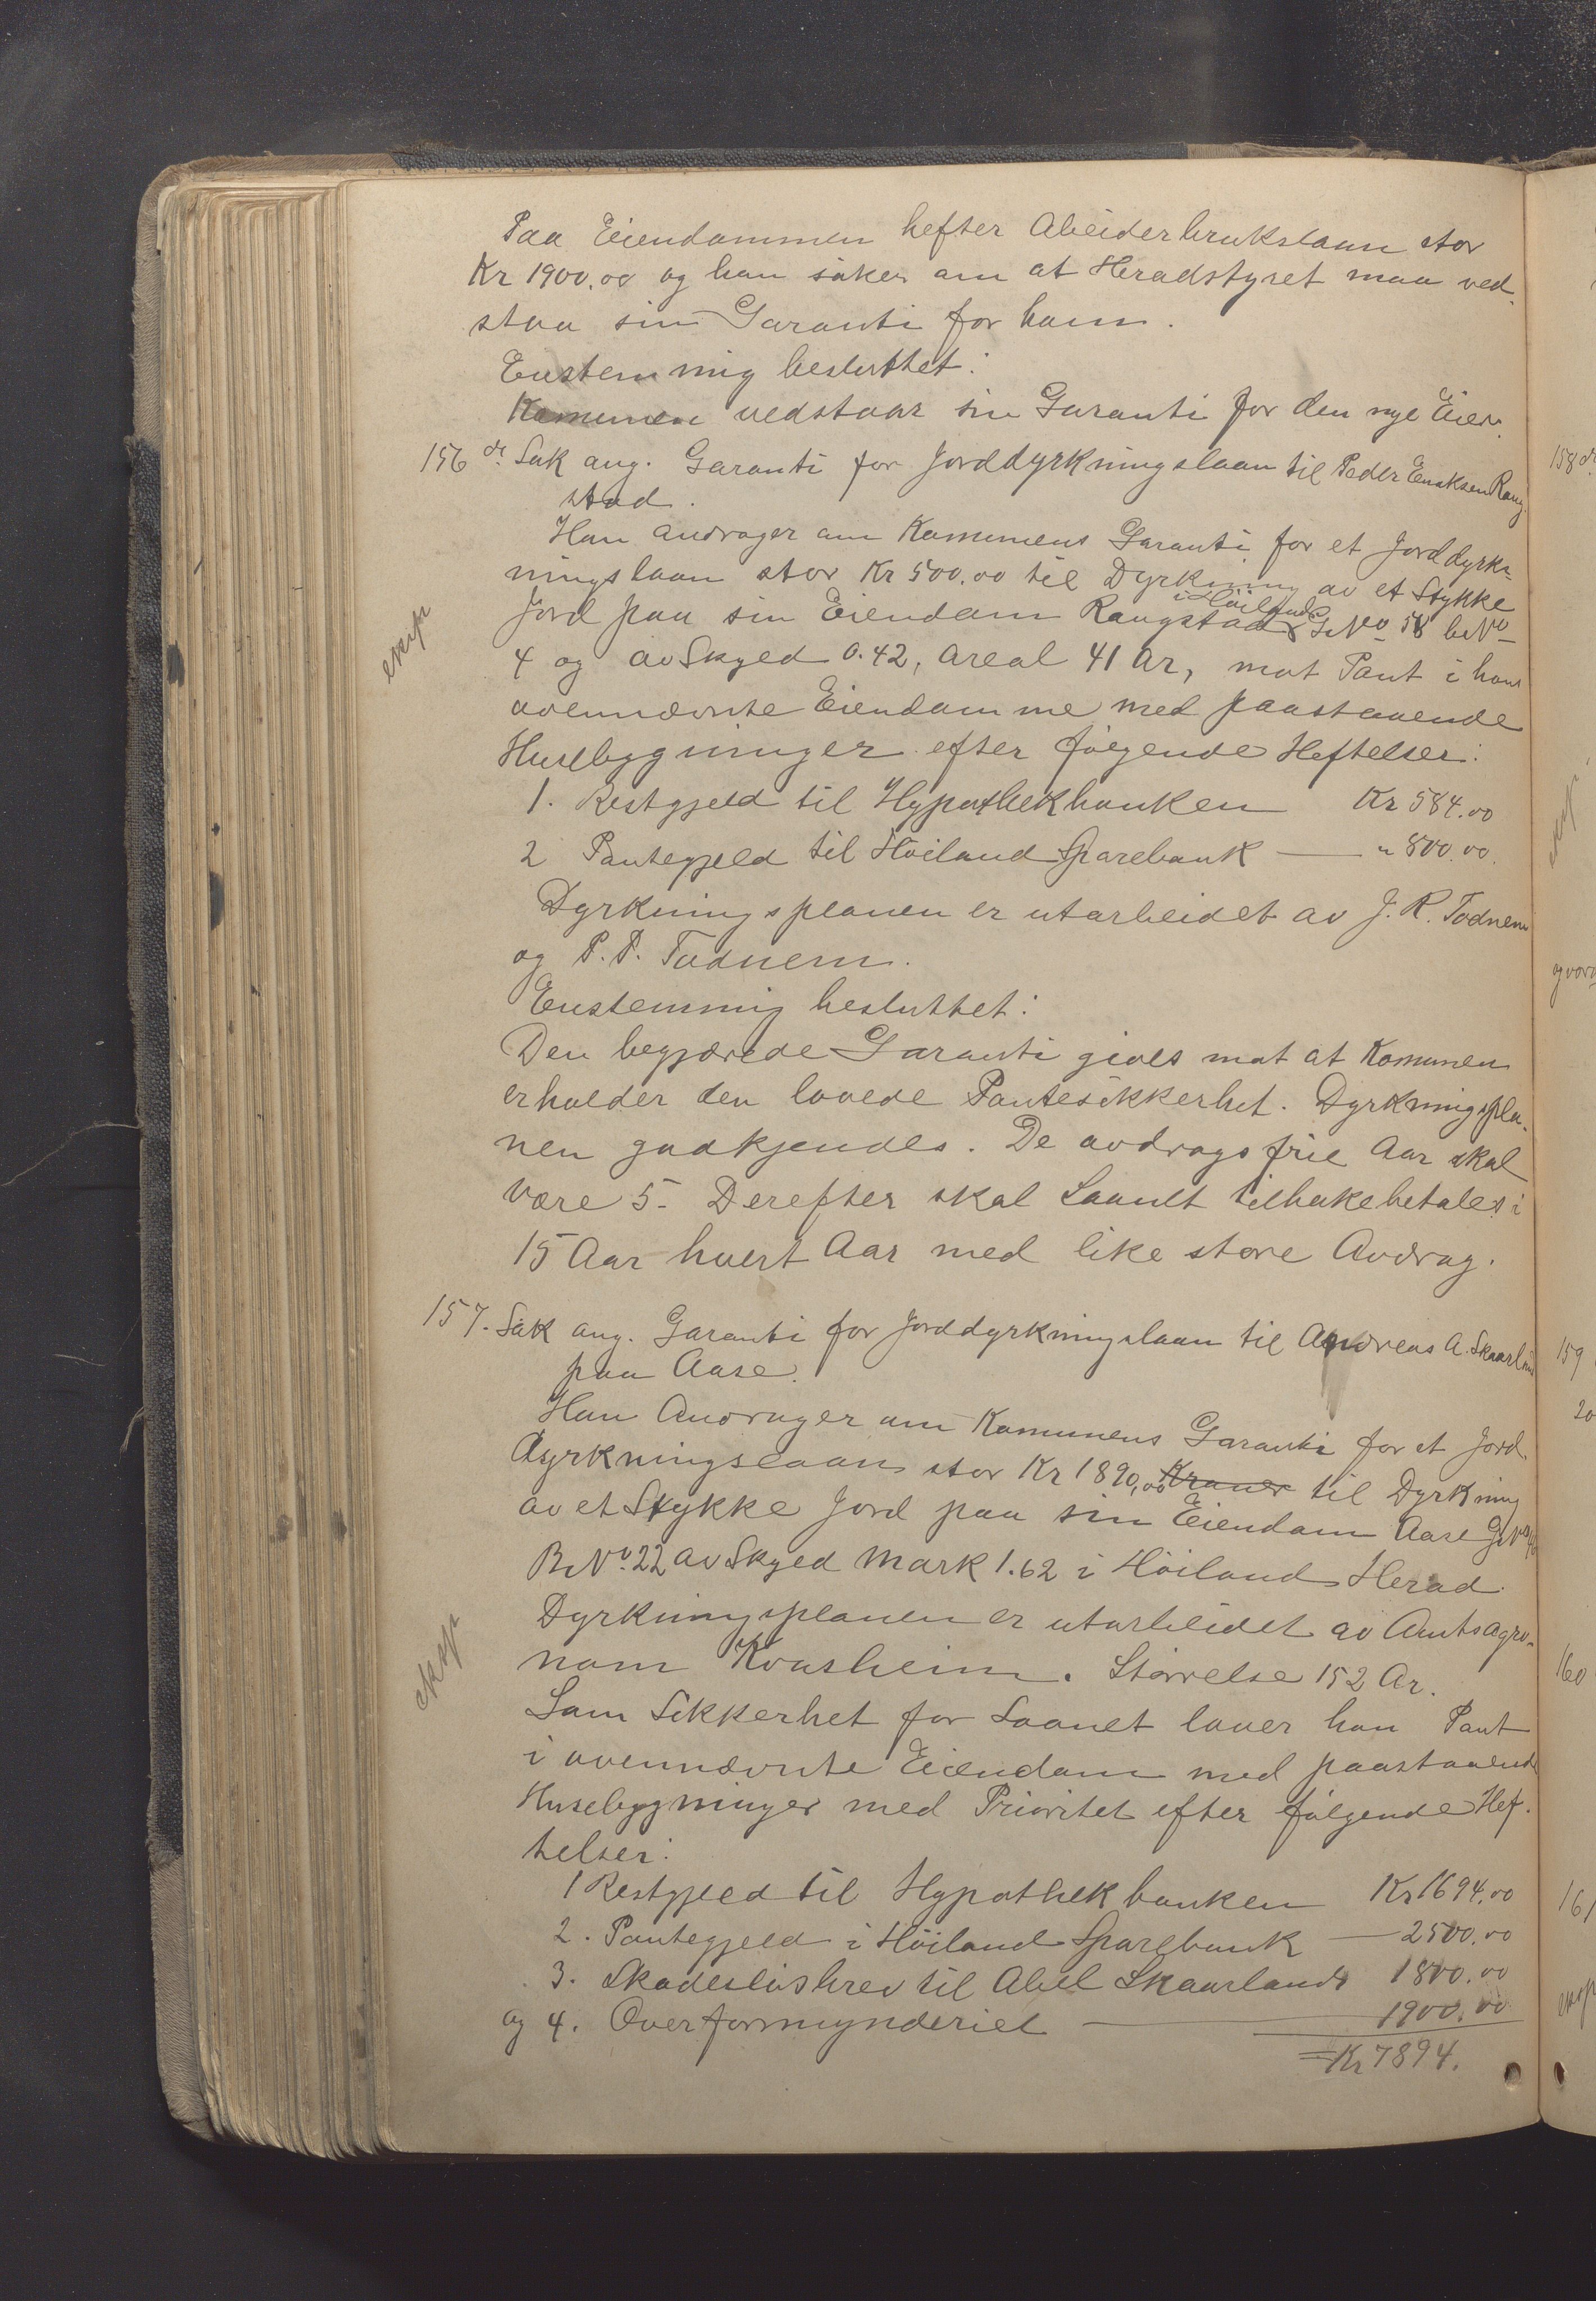 Paa Eiendommen hefter Abeiderbrukslaan stor
Kr 1900.00 og han søker om at Heradstyret maa ved-
staa sin Garanti for ham.
Enstemmig besluttet:
Komunen vedstaar sin Garanti for den nye Eier.
156 de Sak ang. Garanti for Jorddyrkningslaan til Peder Enoksen Raug-
stad.
Han androger om Komunens Garanti for et Jorddyrk-
ningslaan stor Kr 500.00 til Dyrkning av et Stykke
i Høiland
Jord paa sin Eiendom Raugstad GNo 58 bNo
4 og av Skyld 0.42, areal 41 ar, mot Pant i hans
ovennævnte Eiendomme med paastaaende
Husebygninger efter følgende Heftelser:
1. Restgjeld til Hypothekbanken Kr 584.00
2 Pantegjeld til Høiland Sparebank — " 800.00.
Dyrkningsplanen er utarbeidet av J. R. Todnem
og P. P. Todnem.
Enstemmig besluttet:
Den begjærede Garanti gives mot at Komunen
erholder den lovede Pantesikkerhet. Dyrkningspla-
nen godkjendes. De avdragsfrie Aar skal
være 5. Derefter skal Laanet tilbakebetales i
15 Aar hvert Aar med like store Avdrag.
157. Sak ang. Garanti for Jorddyrkningslaan til Andreas A. Skaarland
paa Aase.
Han Androger om Komunens Garanti for et Jord-
dyrkningslaan stor Kr 1890,00 Kroner til Dyrkning
av et Stykke Jord paa sin Eiendom Aase GNo
BNo. 22 av Skyld Mark 1.62 i Høiland Herad.
Dyrkningsplanen er utarbeidet av Amtsagro-
nom Kvasheim. Størrelse 152 Ar.
Som Sikkerhet for Laanet lover han Pant
i ovennævnte Eiendom med paastaaende
Husebygninger med Prioritet efter følgende Hef-
telser:
1 Restgjeld til Hypothekbanken Kr 1694.00
2. Pantegjeld i Høiland Sparebank — 2500.00
3. Skadesløsbrev til Abel Skaarland 1800.00
og 4. Overformynderiet — 1900.00
= Kr 7894.
exsp
eksp
158 de
159
160
161